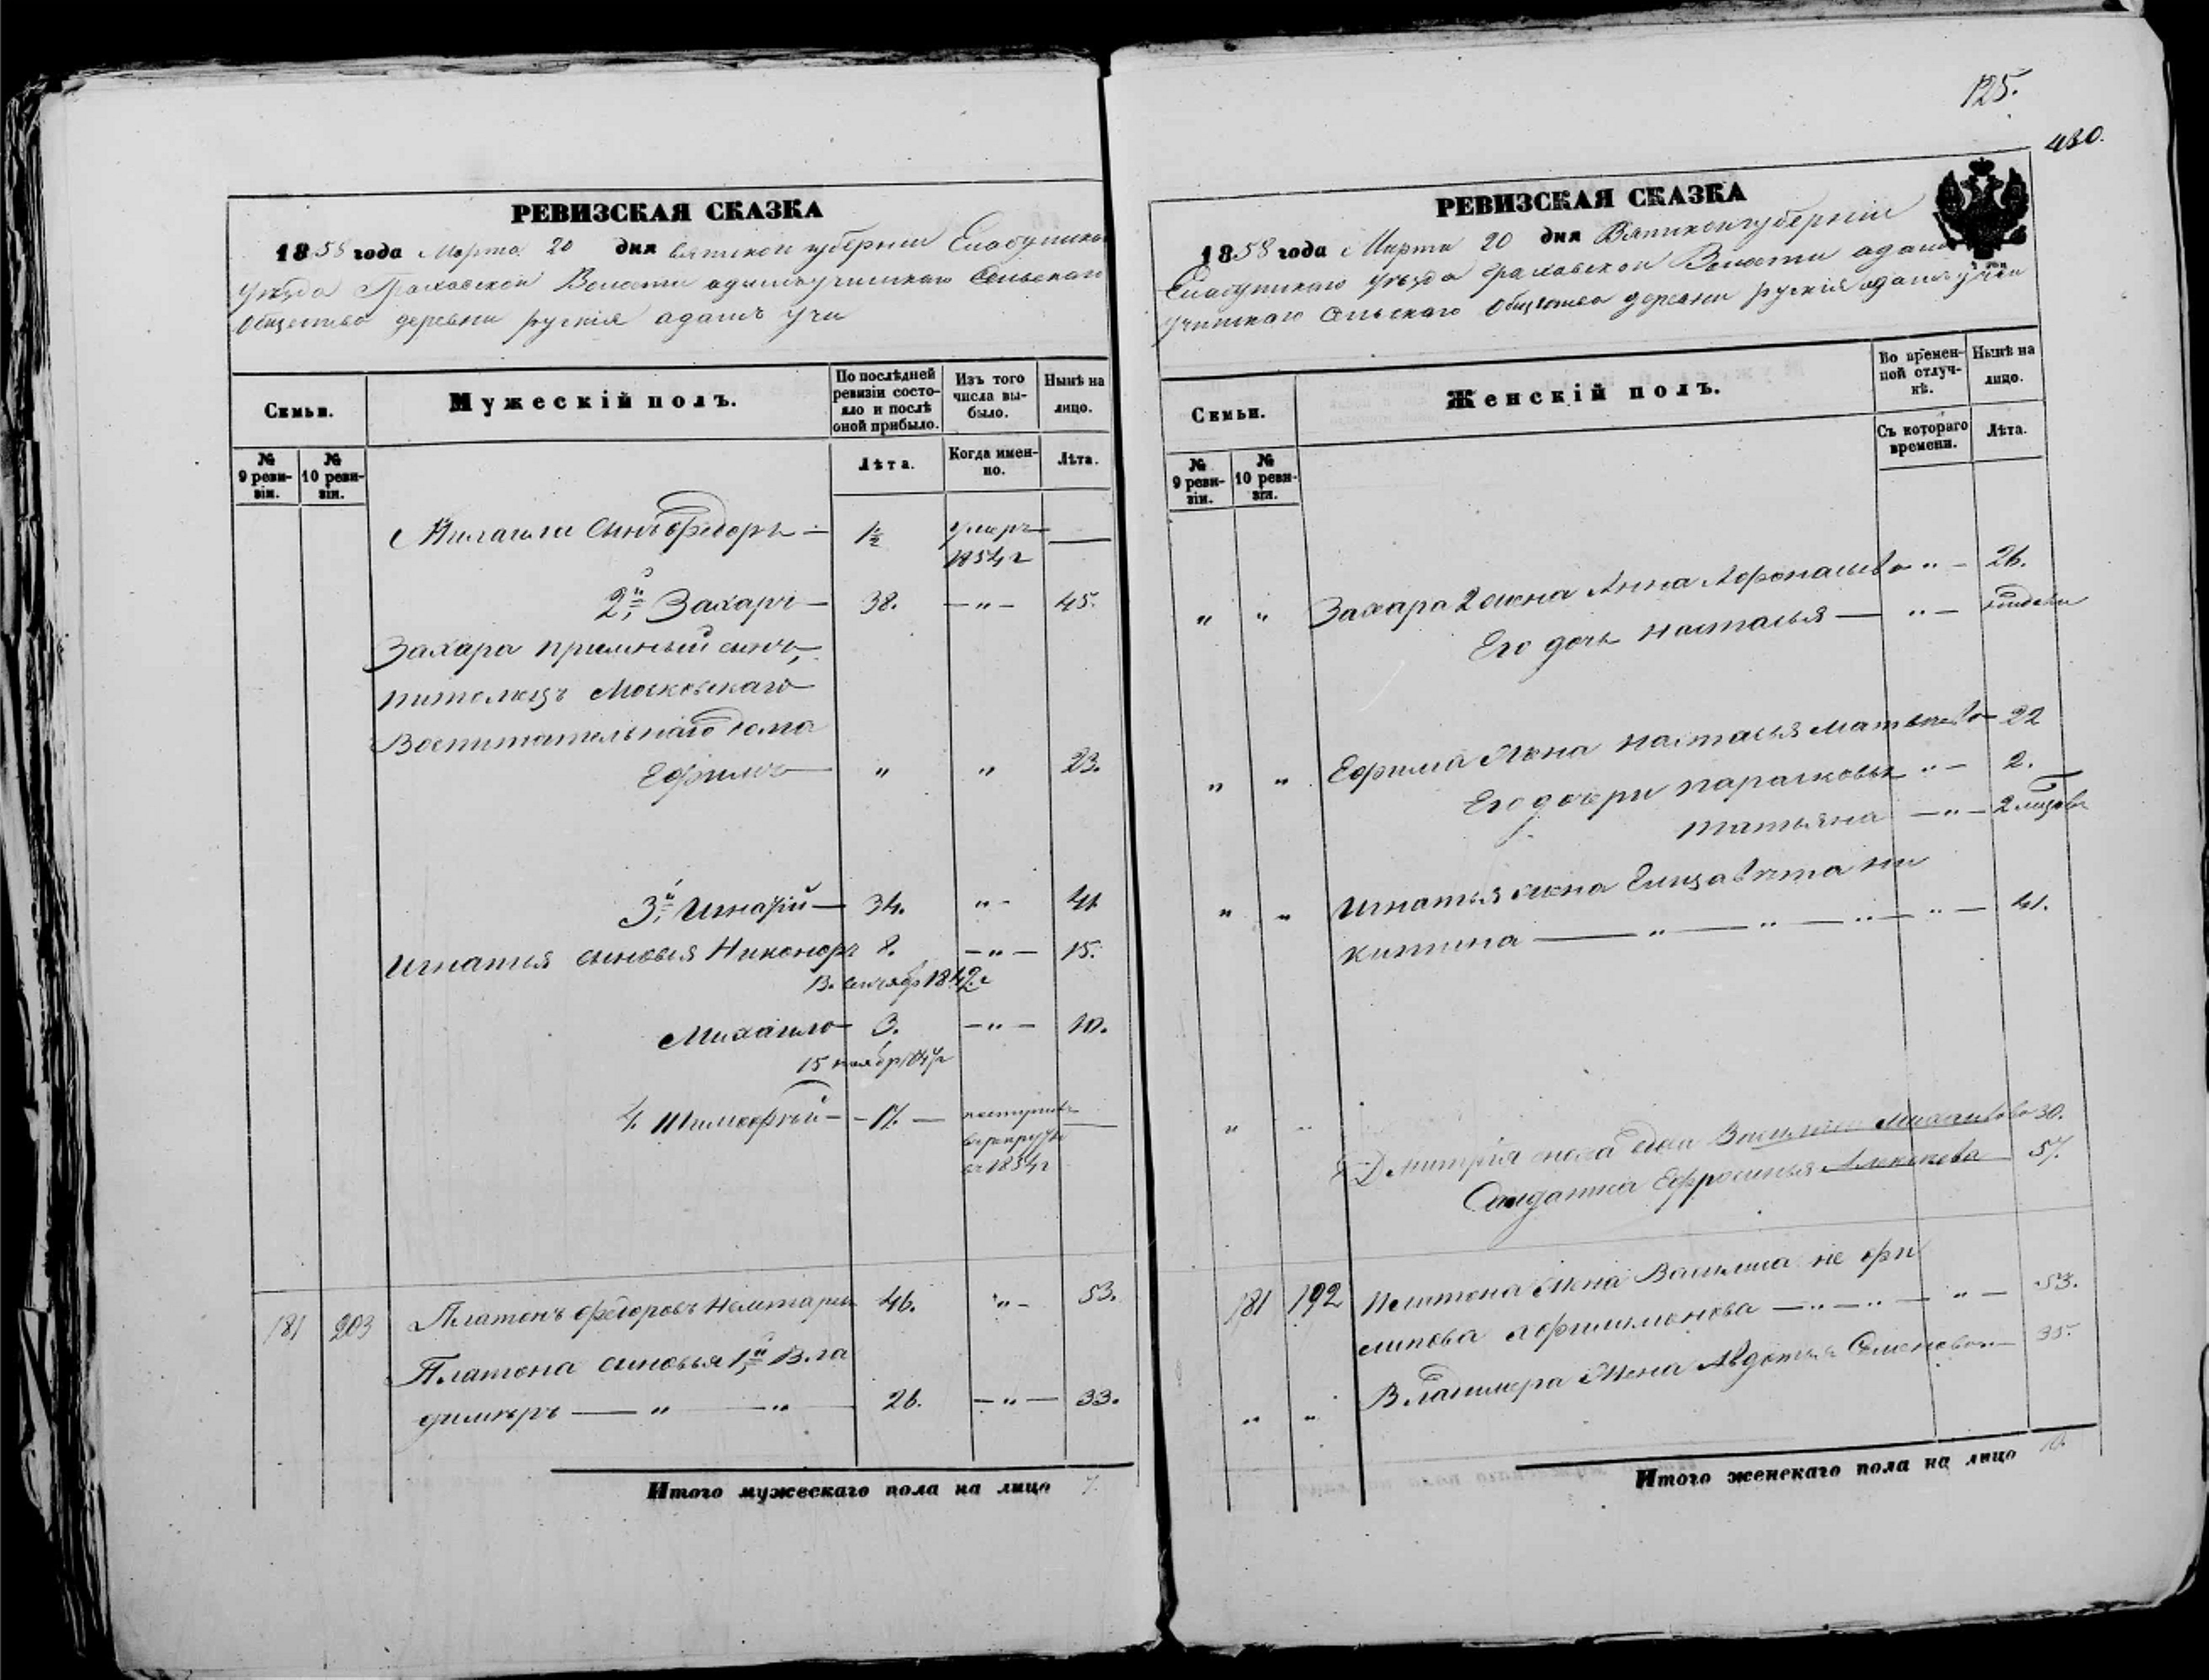 РЕВИЗСКАЯ СКАЗКА
1858 года Марта 20 дня Вятской губернии Елабужска
уѣзда Граховской Волости адамъ учинскаго Сельскаго
Общества деревни русскія адамъ учи
Семьи.
Мужескій полъ.
По послѣдней ревизіи состояло и послѣ оной прибыло.
Изъ того числа выбыло.
Нынѣ на лицо.
№ 9 ревизіи.
№ 10 ревизіи.
Лѣта.
Когда именно.
Лѣта.
Михаила сынъ Федоръ — 1½ умеръ 1854 г —
2й Захаръ — 38. — " — 45.
Захара приемный сынъ,
питомецъ Московскаго
Воспитательнаго дома
Ефимъ — " " 23.
3й Игнатій — 34. " - 41
Игнатья сыновья Никоноръ 8. — " — 15.
Михаило — 3. — " — 10.
15 ноября 1847 г
4. Тимофей — 17. — поступилъ
въ рекруты
въ 1854 г
181 203 Платонъ Федоровъ 46. " - 53.
Платона сыновья 1й Вла
димиръ — " — " 26. — " — 33.
Итого мужескаго пола на лицо 7.
125.
430.
РЕВИЗСКАЯ СКАЗКА
1858 года Марта 20 дня Вятской губерніи
Елабужскаго уѣзда Граховской Волости адамъ
учинскаго Сельскаго Общества деревни русскія адамъ учи
Семьи.
Женскій полъ.
Во временной отлучкѣ.
Нынѣ на лицо.
№ 9 ревизіи.
№ 10 ревизіи.
Съ котораго времени.
Лѣта.
" " Захара 2 жена Анна Афонасьева " — 26.
Его дочь Настасья — " —
" " Ефима жена Настасья Матвѣева — 22
Его дочери Парасковья " — 2.
Татьяна — " — 2
" " Игнатья жена Елизавѣта Ни
китина — " — " — " — " — 41.
" " Дмитрія сноха Михайлова 30.
Солдатка Ефросинья Алексѣева 57.
181 192 Платона жена Василиса
Афилимонова — " — " — " — 53.
" " Владимера жена Авдотья Семенова — 35.
Итого женскаго пола на лицо 10.